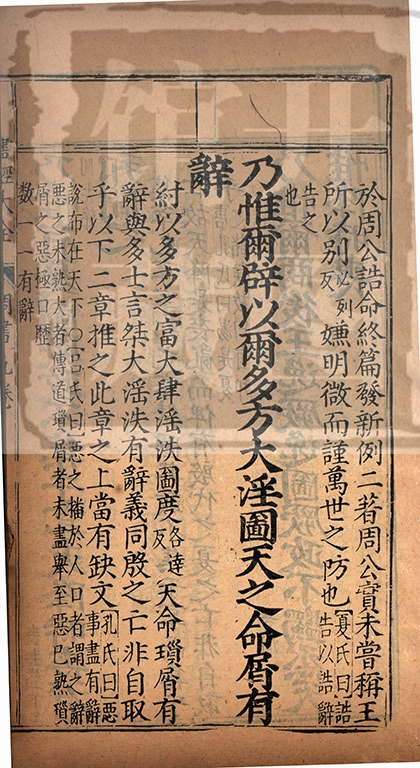 於周公誥命終篇發新例二著周公實未嘗稱王
所以別必列反嫌明微而謹萬世之防也夏氏曰誥告以誥辭
告之也
乃惟爾辟以爾多方大淫圖天之命屑有
辭
紂以多方之富大肆滛泆圖度各達反天命瑣屑有
辭與多士言桀大滛泆有辭義同殷之亡非自取
乎以下二章推之此章之上當有缺文孔氏曰惡事盡有辭
說布在天下○呂氏曰惡之播於人口者謂之辭
惡之未熟大者傳道瑣屑者未盡舉至惡已熟瑣
屑之惡極口歷
數一一有辭
書經大全
周書九卷